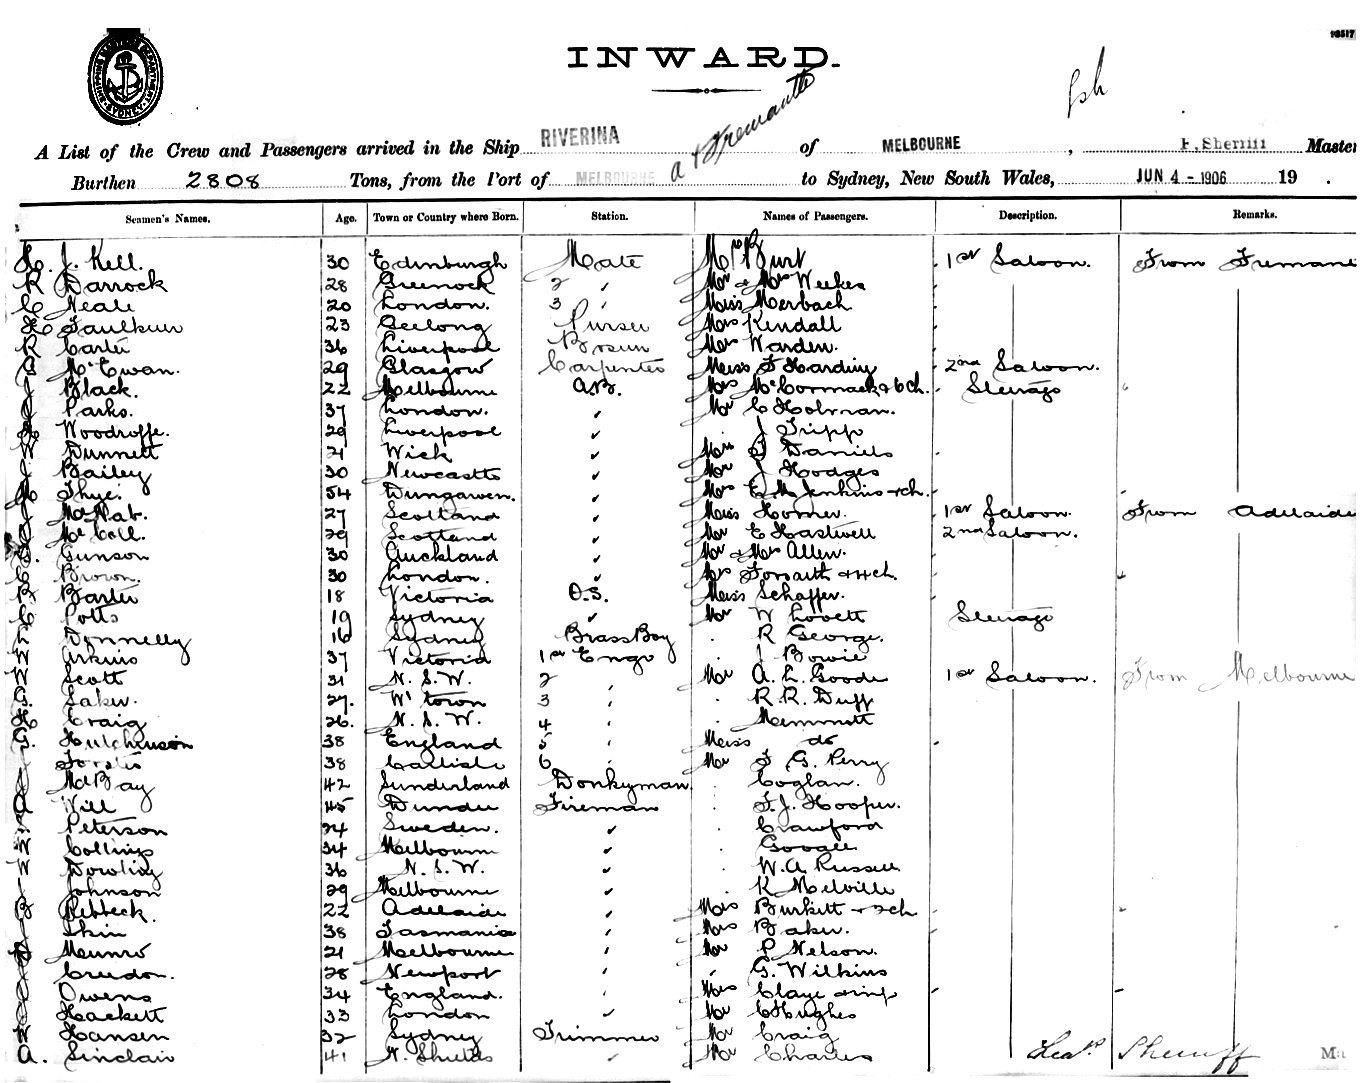 INWARD.
A List of the Crew and Passengers arrived in the Ship RIVERINA of MELBOURNE, Sherriff Master
& Fremantle
Burthen 2808 Tons, from the Port of MELBOURNE to Sydney, New South Wales, JUN 4 - 1906 19 .
Seamen's Names. Age. Town or Country where Born. Station. Names of Passengers. Description. Remarks.
J. Kell. 30 Edinburgh Mate Mr Burt 1st Saloon. From
R Darrock 28 Greenock 2 " Mr & Mrs Weekes
C Neale 20 London. 3 " Miss Merbach
Faulkner 23 Geelong Purser Kendall
R Carter 36 Liverpool Bosun Warden.
McEwan. 29 Glasgow Carpenter Miss F Harding 2nd Saloon.
Black. 22 Melbourne A.B. Mrs McCormack & 6 ch. Steerage
Parks. 37 London. Mr C Holman.
Woodroffe. 29 Liverpool J Tripp
Dunnett 21 Wick Daniels
Bailey 30 Newcastle Mr J Hodges
54 Dungarven. Mrs Jenkins & ch.
McNab. 27 Scotland Miss Horner. 1st Saloon. From Adelaide
McColl. 29 Scotland Mr E Hastwell 2nd Saloon.
Gunson 30 Auckland Mr & Mrs Allen.
Brown. 30 London. Mrs Forsaith & 4 ch.
Barter 18 Victoria O.S. Miss Schaffer.
C Potts 19 Sydney Mr W Lovett Steerage
Donnelly 16 Sydney Brass Boy R George.
37 Victoria 1st Engr J Bowie
W Scott 31 N.S.W. 2 Mr A. L. Goode 1st Saloon. From Melbourne
G. 27. W'town 3 R. R. Duff
Craig 26. N.S.W. 4
G. Hutchinson 38 England 5 Miss do
38 Carlisle 6 Mr F G. Perry
McBay 42 Sunderland Donkeyman Coglan.
A. Will 45 Dundee Fireman F. J. Hooper.
Peterson 24 Sweden. Crawford
Collings 34 Melbourne
Dowling 36 N.S.W. W. A Russell
Johnson 29 Melbourne K Melville
Rebbeck. 22 Adelaide Mrs Burkett & 2 ch
38 Tasmania Mrs Baker.
Munro 21 Melbourne Mr P Nelson.
Creedon. 28 Newport G. Wilkins
Owens 34 England. Mrs
Hackett 33 London Mr C Hughes
W Hansen 32 Sydney Trimmer Mr Craig
A. Sinclair 41 N. Shields Mr Charles Sherriff